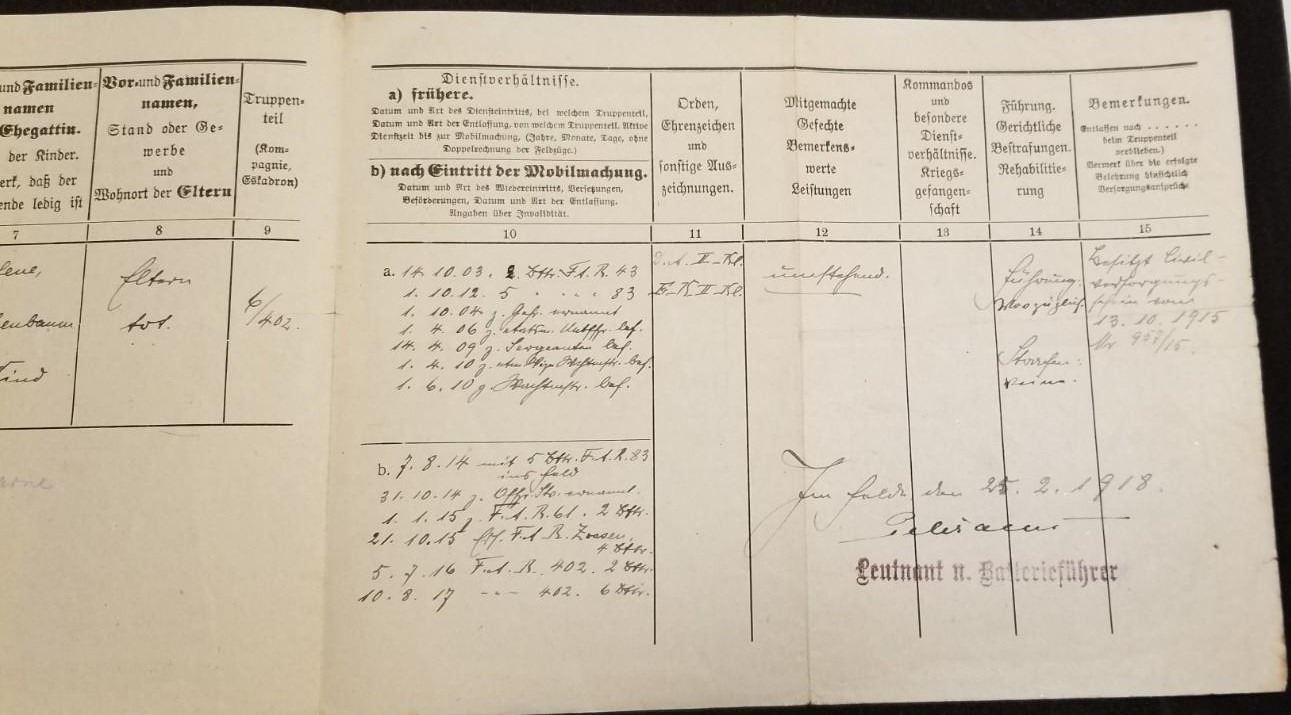 und Familien-
namen
Ehegattin.
der Kinder.
erk, daß der
ende ledig ist
7
Vor- und Familien-
namen,
Stand oder Ge-
werbe
und
Wohnort der Eltern
8
Truppen-
teil
(Kom-
pagnie,
Eskadron)
9
Dienstverhältnisse.
a) frühere.
Datum und Art des Diensteintritts, bei welchem Truppenteil,
Datum und Art der Entlassung, von welchem Truppenteil. Aktive
Dienstzeit bis zur Mobilmachung, (Jahre, Monate, Tage, ohne
Doppelrechnung der Feldzüge.)
b) nach Eintritt der Mobilmachung.
Datum und Art des Wiedereintritts, Versetzungen,
Beförderungen, Datum und Art der Entlassung.
Angaben über Invalidität.
10
Orden,
Ehrenzeichen
und
sonstige Aus-
zeichnungen.
11
Mitgemachte
Gefechte
Bemerkens-
werte
Leistungen
12
Kommandos
und
besondere
Dienst-
verhältnisse.
Kriegs-
gefangen-
schaft
13
Führung.
Gerichtliche
Bestrafungen.
Rehabilitie-
rung
14
Bemerkungen.
Entlassen nach . . . . . .
beim Truppenteil
verblieben.)
Vermerk über die erfolgte
Belehrung hinsichtlich
Versorgungsansprüche
15
lene,
enbaum
Kind
Eltern
tot.
6/402.
a. 14. 10. 03. 2. Bttr. F. A. R. 43
1. 10. 12. 5 " " " 83
1. 10. 04 z. Gefr. ernannt
1. 4. 06 z. etatm. Untffz. bef.
14. 4. 09 z. Sergeanten bef.
1. 4. 10 z. Wachtmstr. bef.
1. 6. 10 z. Wachtmstr. bef.
b. 7. 8. 14 mit 5 Bttr. F. A. R. 83
ins Feld
31. 10. 14 z. Offz. Stv. ernannt.
1. 1. 15 z. F. A. R. 61. 2 Bttr.
21. 10. 15 Ers. F. A. R. Zossen.
4 Bttr.
5. 7. 16 F. A. R. 402. 2 Bttr.
10. 8. 17 -"- 402. 6 Bttr.
D. A. III - Kl.
E. K. II - Kl.
umstehend.
Führung:
Vorzüglich.
Strafen:
keine.
Besitzt Civil-
versorgungs-
schein vom
13. 10. 1915
Nr. 957/15.
Im Felde, den 25. 2. 1918.
Leutnant u. Batterieführer